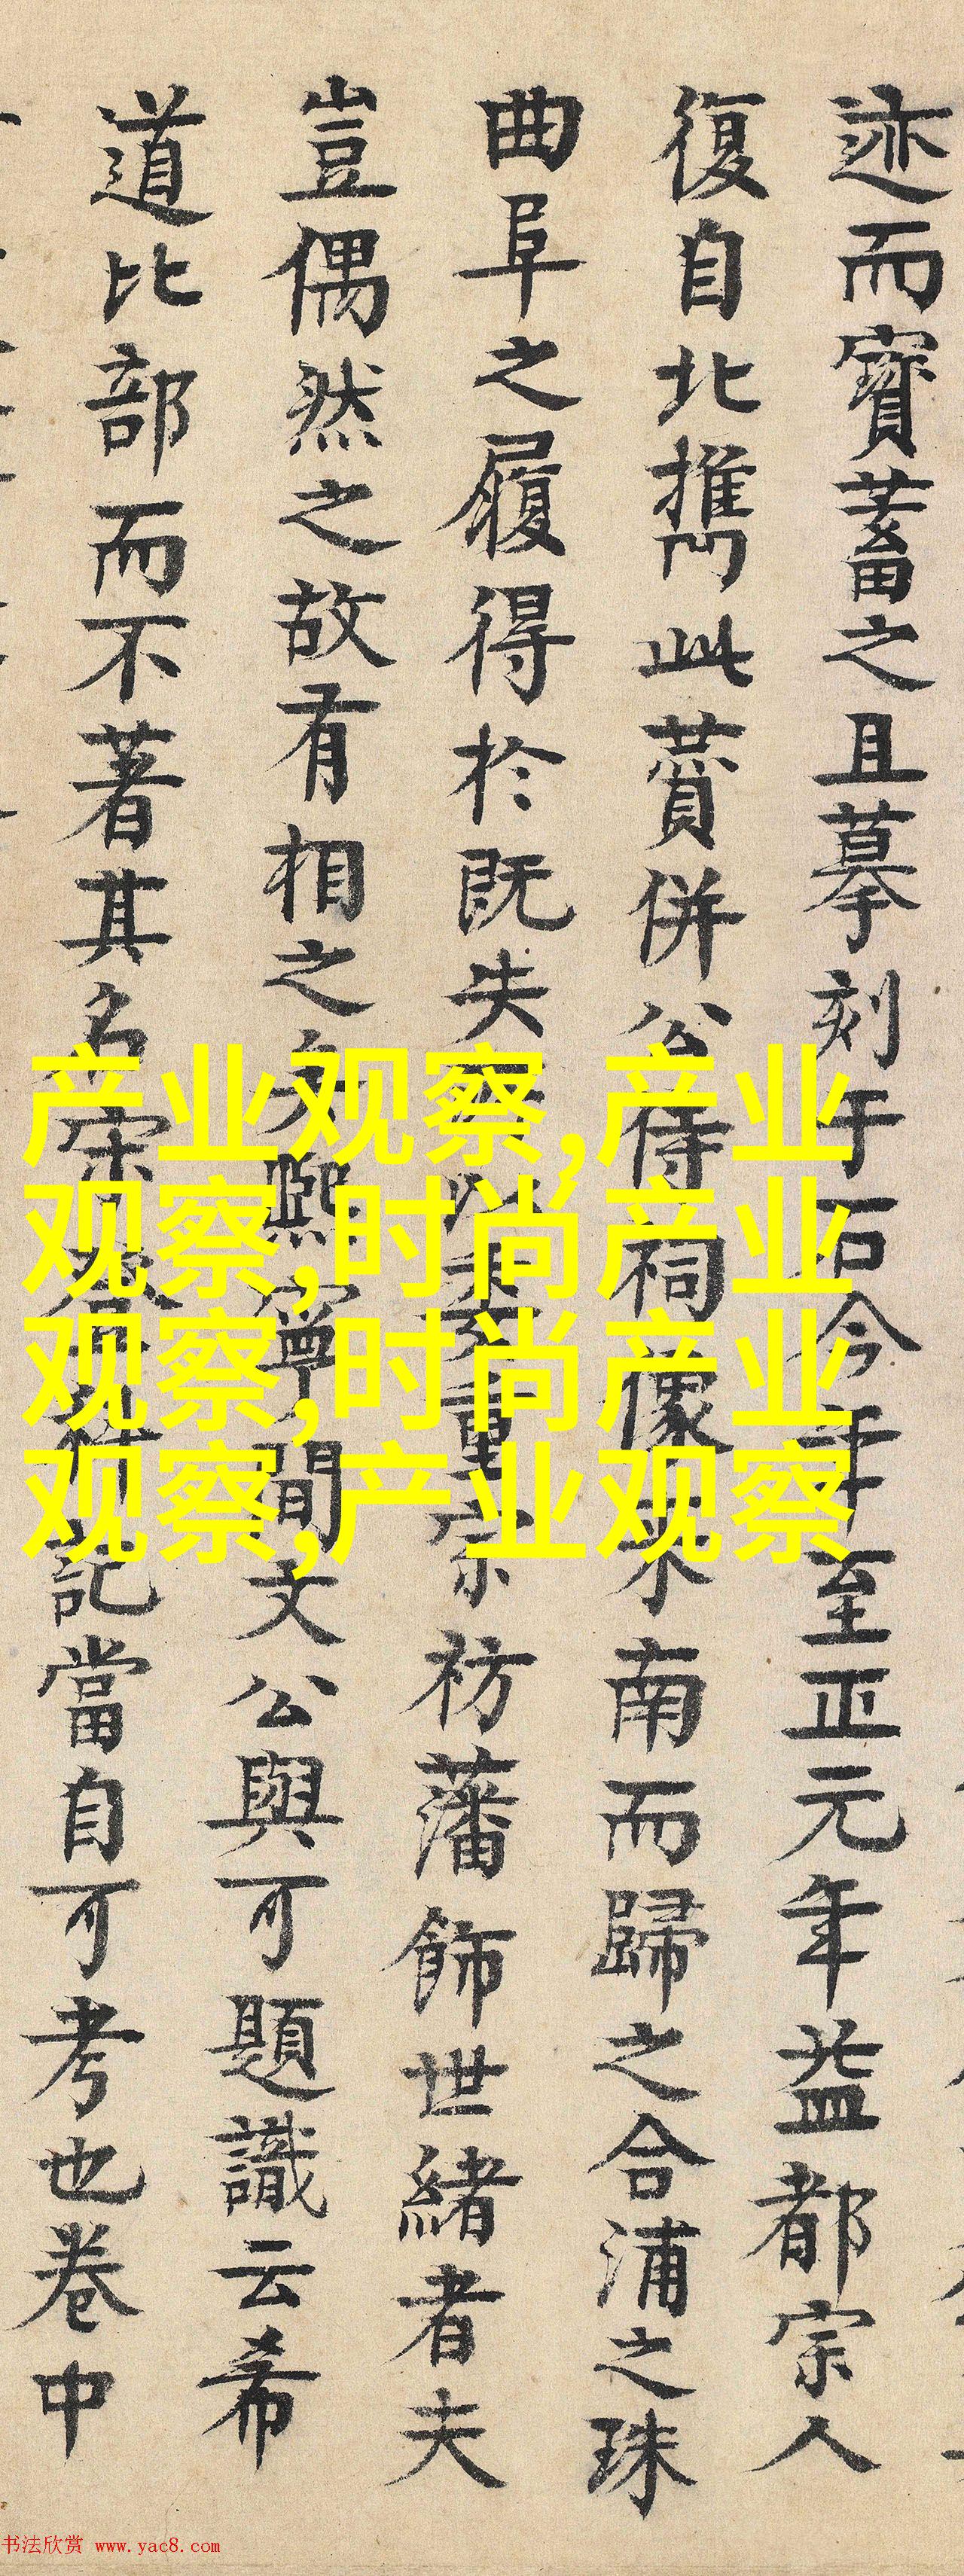 迹而寶蓄之且摹刻于石今年至正元年益都宗人
復自北攜此賛併公待祠像來南而歸之合浦之珠
曲阜之履得於既失重宗祊藩飾世緒者夫
豈偶然之故有相之矣熙寧間文公與可題識云希
道比部而不著其名宋登科記當自可考也卷中
产业观察,产业
观察,时尚产业
观察,时尚产业
观察,产业观察
书法欣赏 www.yac8.com